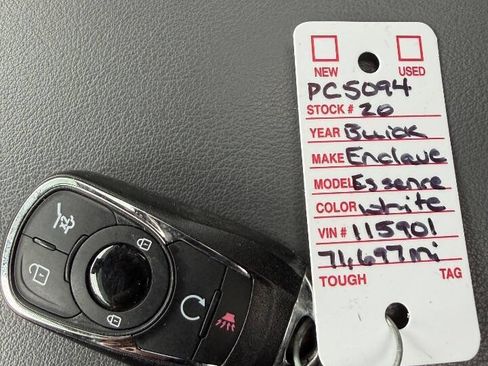 NEW USED
PC5094
STOCK # 20
YEAR Buick
MAKE Enclave
MODEL Essence
COLOR white
VIN # 115901
71,697mi
TOUGH TAG